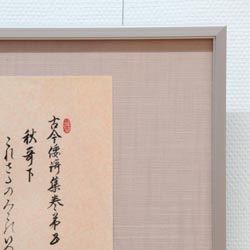 古今倭謌集巻第五
秋哥下
これさたのみこの